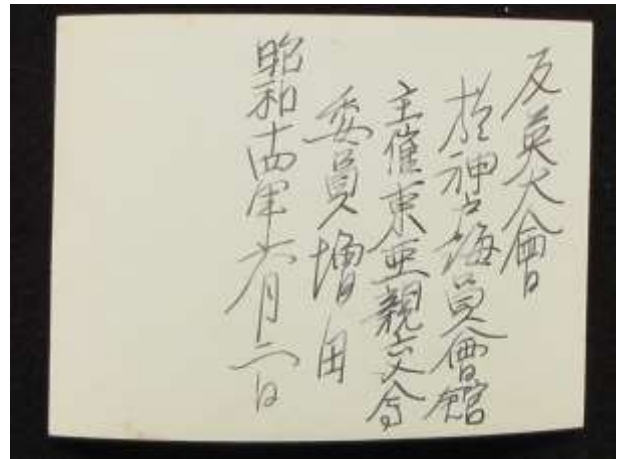 反英大會
於神戸海員會館
主催東亜親交会
委員増田
昭和十四年六月二日